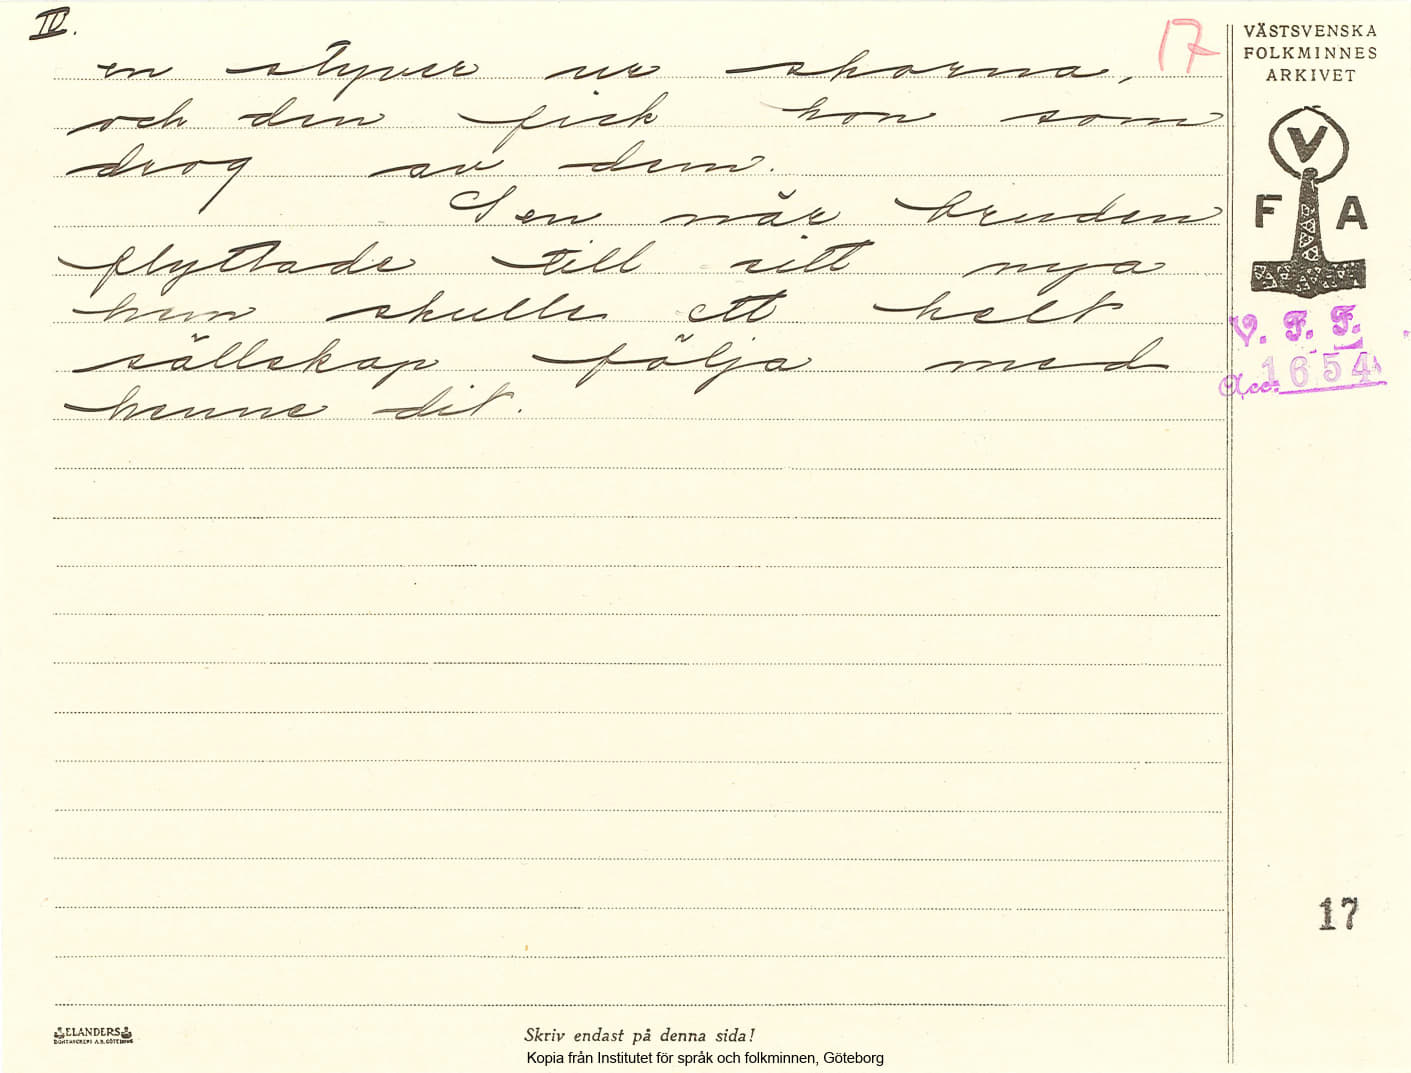 IV.
17
en styver ur skorna,
och den fick hon som
drog av dem.
Sen när bruden
flyttade till sitt nya
hem skulle ett helt
sällskap följa med
henne dit.
VÄSTSVENSKA
FOLKMINNES
ARKIVET
V
F A
V. F. F.
Acc. 1654
17
ELANDERS
Skriv endast på denna sida!
Kopia från Institutet för språk och folkminnen, Göteborg